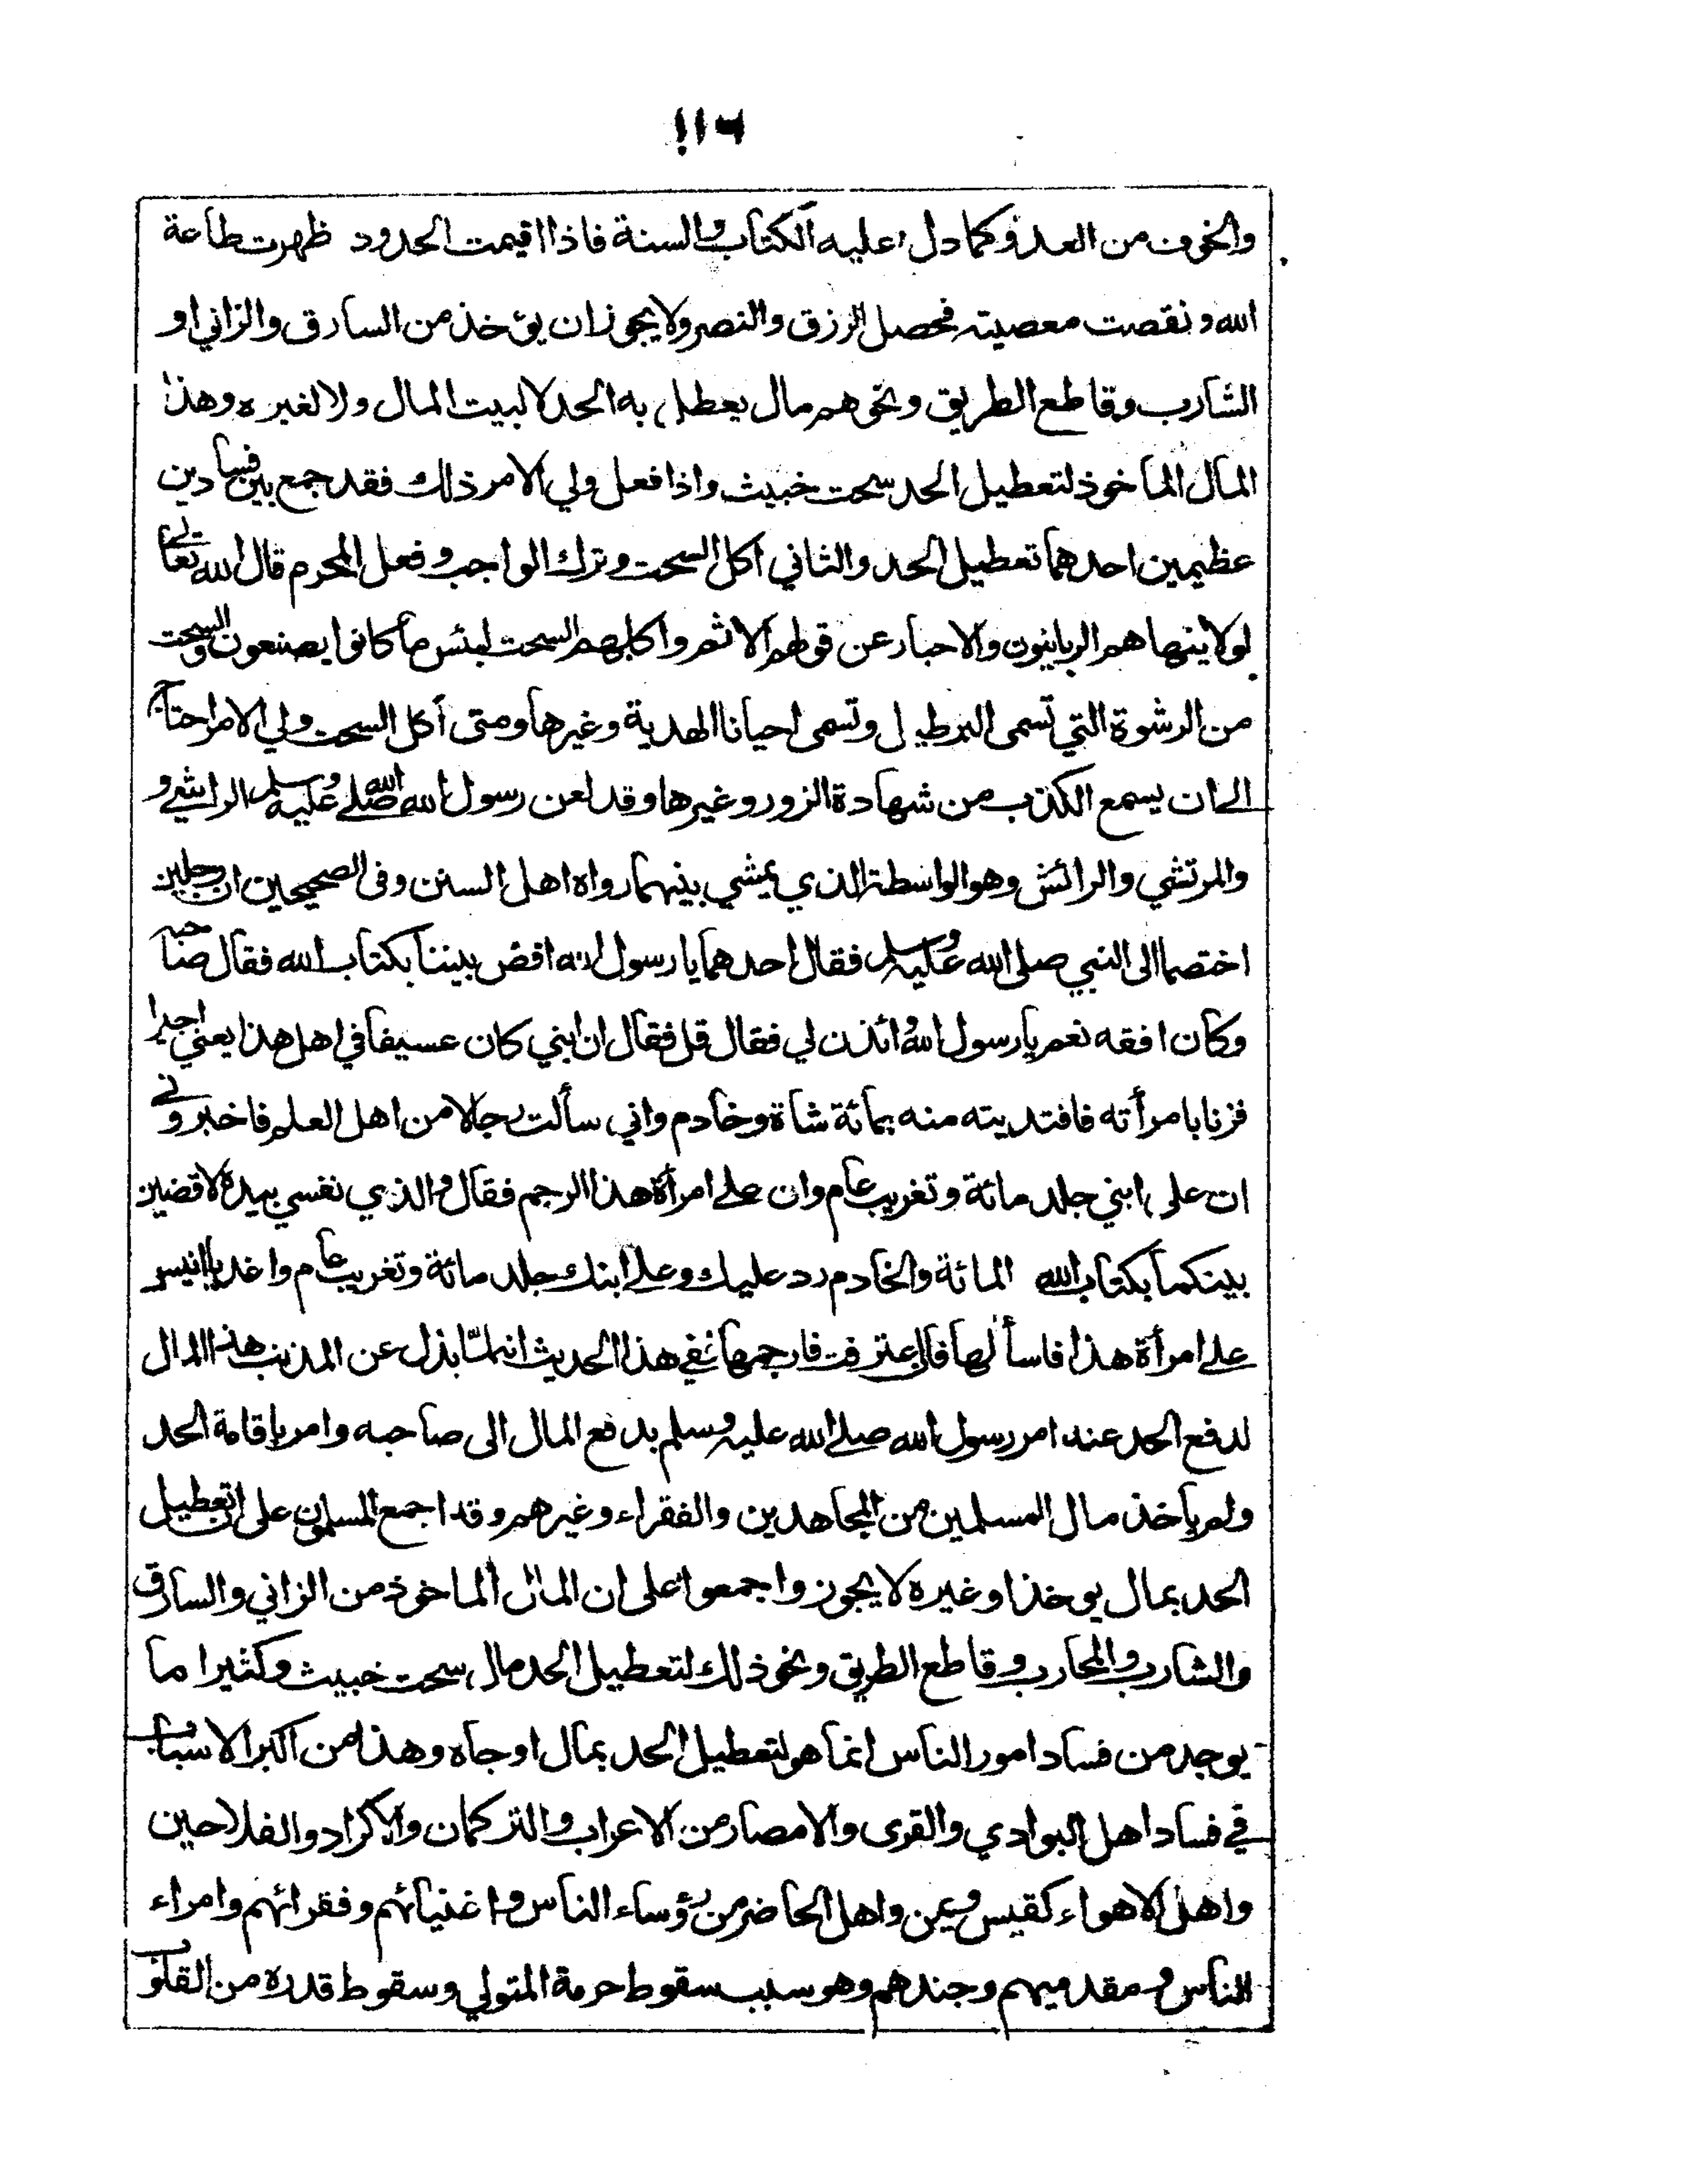 ١١٦
والخوف من العدو كما دل عليه الكتاب والسنة فاذا اقيمت الحدود ظهرت طاعة
الله ونقصت معصيته فحصل الرزق والنصر ولا يجوز ان يؤخذ من السارق والزاني او
الشارب وقاطع الطريق ونحوهم مال يعطل به الحد لا لبيت المال ولا لغيره وهذا
المال المأخوذ لتعطيل الحد سحت خبيث واذا فعل ولي الامر ذلك فقد جمع بين فسادين
عظيمين احدهما تعطيل الحد والثاني اكل السحت وترك الواجب وفعل المحرم قال الله تعالى
لولا ينهاهم الربانيون والاحبار عن قولهم الاثم واكلهم السحت لبئس ما كانوا يصنعون والسحت
من الرشوة التي تسمى البرطيل وتسمى احيانا الهدية وغيرها ومتى اكل السحت ولي الامر احتاج
الى ان يسمع الكذب من شهادة الزور وغيرها وقد لعن رسول الله صلى الله عليه وسلم الراشي و
والمرتشي والرائش وهو الواسطة الذي يمشي بينهما رواه اهل السنن وفى الصحيحين ان رجلين
اختصما الى النبي صلى الله عليه وسلم فقال احدهما يا رسول الله اقض بيننا بكتاب الله فقال صاحبه
وكان افقه نعم يا رسول الله وائذن لي فقال قل فقال ان ابني كان عسيفا في اهل هذا يعني اجيرا
فزنا بامرأته فافتديته منه بمائة شاة وخادم واني سألت رجالا من اهل العلم فاخبروني
ان على ابني جلد مائة وتغريب عام وان على امرأة هذا الرجم فقال والذي نفسي بيده لاقضين
بينكما بكتاب الله المائة والخادم رد عليك وعلى ابنك جلد مائة وتغريب عام واغد يا انيس
على امرأة هذا فاسألها فان اعترفت فارجمها ففي هذا الحديث انه لمّا بذل عن المذنب هذا المال
لدفع الحد عنه امر رسول الله صلى الله عليه وسلم بدفع المال الى صاحبه وامر باقامة الحد
ولم يأخذ مال المسلمين من المجاهدين والفقراء وغيرهم وقد اجمع المسلمون على ان تعطيل
الحد بمال يوخذ او غيره لا يجوز واجمعوا على ان المال الماخوذ من الزاني والسارق
والشارب والمحارب وقاطع الطريق ونحو ذلك لتعطيل الحد مال سحت خبيث وكثيرا ما
يوجد من فساد امور الناس انما هو لتعطيل الحد بمال او جاه وهذا من اكبر الاسباب
في فساد اهل البوادي والقرى والامصار من الاعراب والتركمان والاكراد والفلاحين
واهل الاهواء كقيس ويمن واهل الحاضر من رؤساء الناس واغنيائهم وفقرائهم وامراء
الناس ومقدميهم وجندهم وهو سبب سقوط حرمة المتولي وسقوط قدره من القلوب